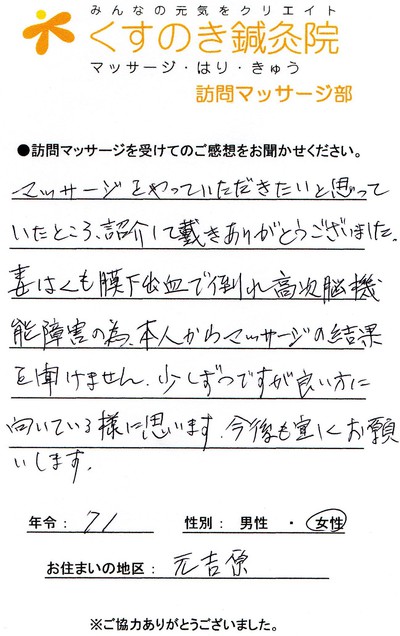 みんなの元気をクリエイト
くすのき鍼灸院
マッサージ・はり・きゅう
訪問マッサージ部
●訪問マッサージを受けてのご感想をお聞かせください。
マッサージをやっていただきたいと思って
いたところ、紹介して戴きありがとうございました。
妻はくも膜下出血で倒れ高次脳機
能障害の為、本人からマッサージの結果
を聞けません。少しずつですが良い方に
向いている様に思います。今後も宜しくお願
いします。
年令： 71 性別： 男性 ・ 女性
お住まいの地区： 元吉原
※ご協力ありがとうございました。